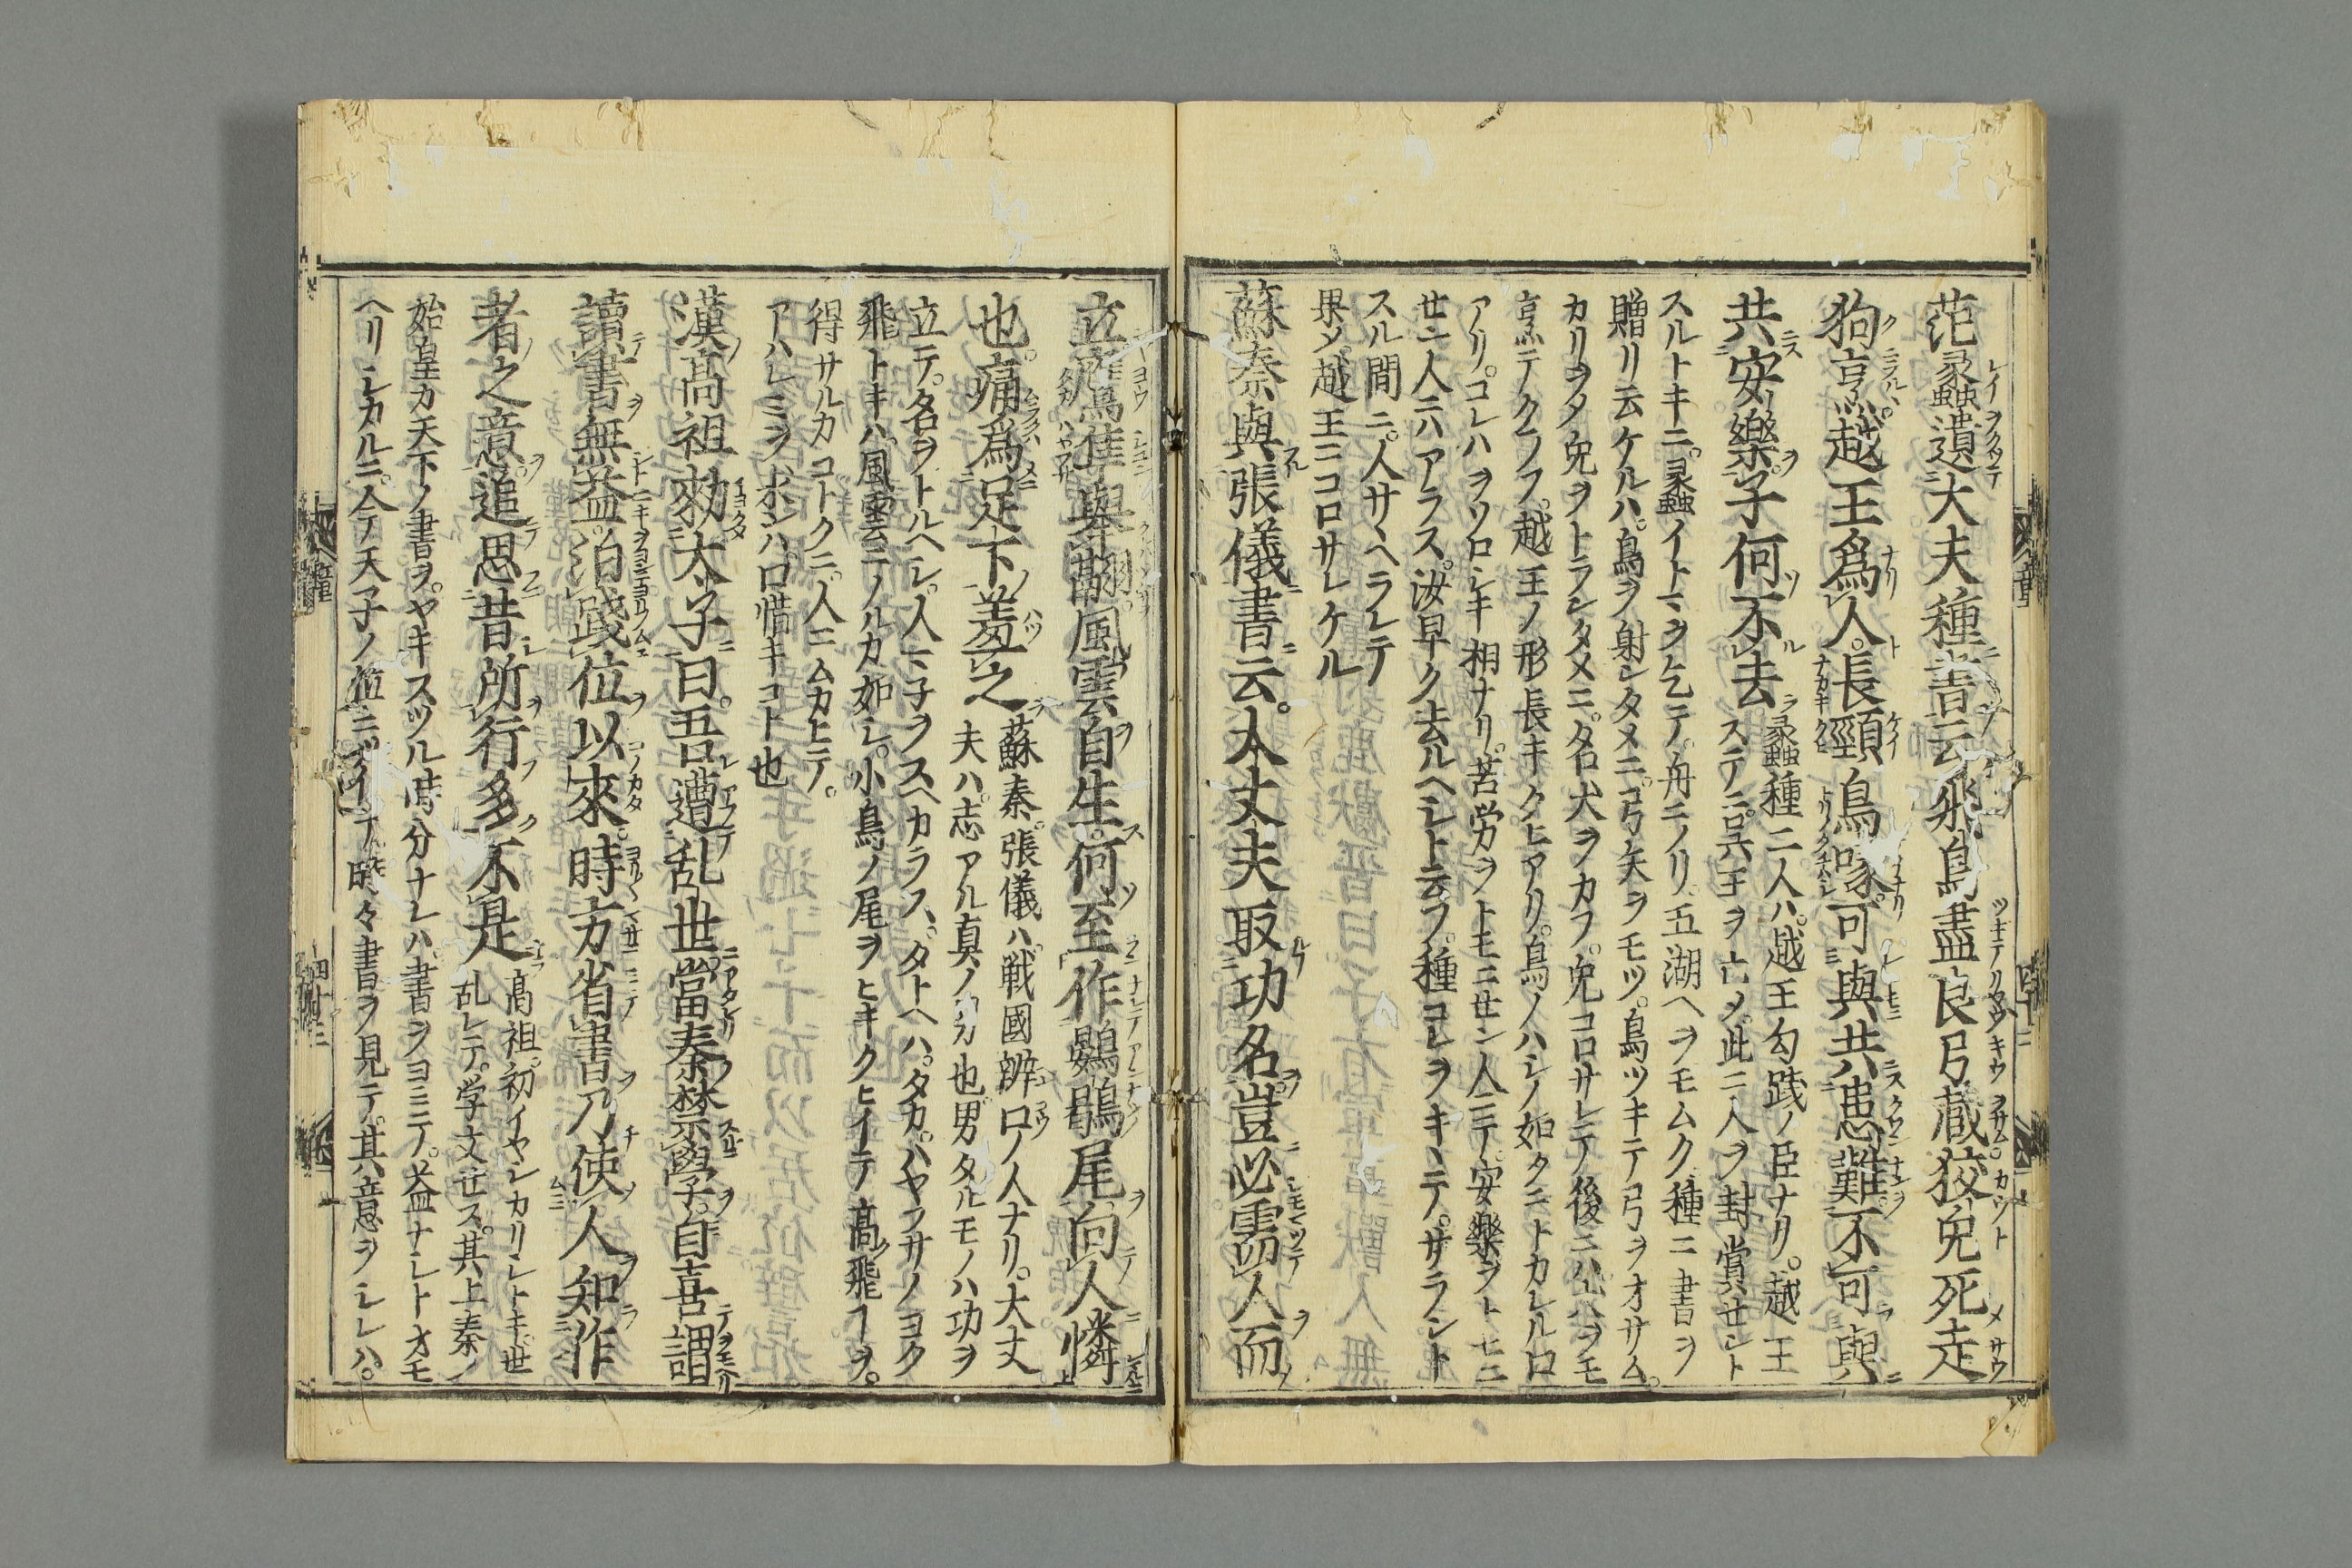 范蠡遺大夫種書云飛鳥盡良弓蔵狡兎死走
狗烹越王爲人長頸鳥喙可與共患難不可與
共安樂子何不去
蠡種二人ハ越王勾践ノ臣ナリ越王
ステニ呉王ヲ亡メ此二人ヲ封賞セント
スルトキニ蠡イトマヲ乞テ舟ニノリ五湖ヘヲモムク種ニ書ヲ
贈リ云ケルハ鳥ヲ射シタメニ弓矢ヲモツ鳥ツキテ弓ヲオサム
カリヲタ兎ヲトランタメニ名犬ヲカフ兎コロサレテ後ニハ犬ヲモ
烹テクラフ越王ノ形長キクヒアリ鳥ノハシノ如クニトカレル口
アリコレハヲソロシキ相ナリ苦労ヲトモニセン人ニテ安樂ヲトモニ
セン人ニハアラス汝早ク去ルヘシト云フ種コレヲキヽテサラント
スル間ニ人サヽヘラレテ
果メ越王ニコロサレケル
蘇秦與張儀書云大丈夫取功名豈必靂人而
立鷹隼舉翮風雲自生何至作鷃鶉尾向人憐
也痛爲足下羞之
蘇秦張儀ハ戦國辨口ノ人ナリ大丈
夫ハ志アル真ノ也男タルモノハ功ヲ
立テ名ヲトルヘシ人マ子ヲスヘカラスタトヘハタカハヤフサノヨク
飛トキハ風雲ニノルカ如シ小鳥ノ尾ヲヒキクヒイテ高飛フヲ
得サルカコトクニ人ニムカヒテ
アハレミヲホシハ口惜キコト也
漢高祖勅太子曰吾遭乱世當秦禁學自喜謂
讀書無益洎踐位以來時方省書乃使人知作
者之意追思昔所行多不是
高祖初イヤシカリシトキ世
乱レテ学文セス其上秦ノ
始皇カ天下ノ書ヲヤキスツル時分ナレハ書ヲヨミテ益ナシトオモ
ヘリシカルニ今テ天子ノ位ニツイテ時々書ヲ見テ其意ヲシレハ